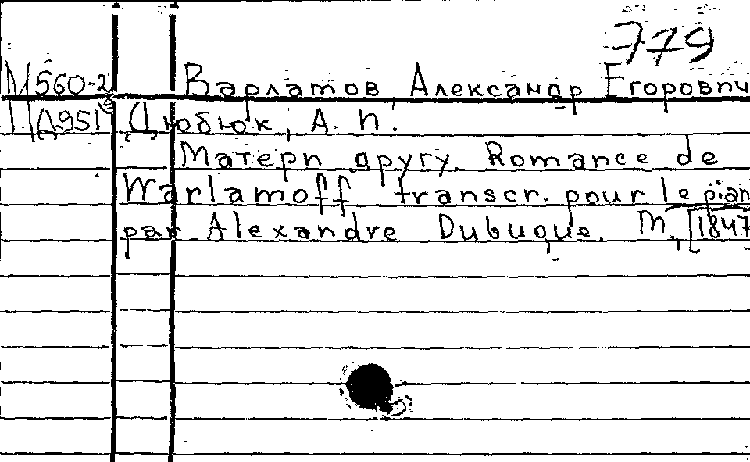 779
М560-2 Варламов, Александр Егорович
Д951 Дюбюк, А. И.
Матери другу. Romance de
Warlamoff transcr. pour le pian
par Alexandre Dubuque. М., [1847